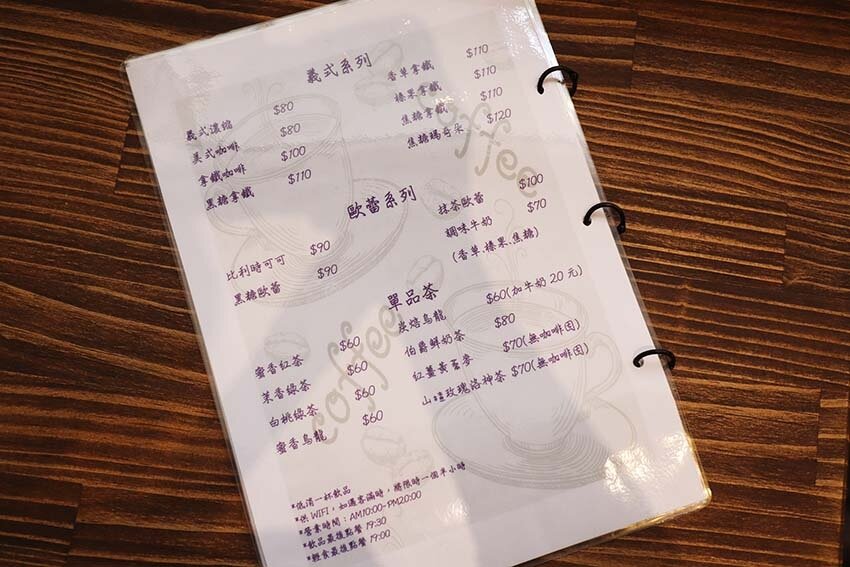 義式系列
義式濃縮 $80
美式咖啡 $80
拿鐵咖啡 $100
黑糖拿鐵 $110
香草拿鐵 $110
榛果拿鐵 $110
焦糖拿鐵 $110
焦糖瑪奇朵 $120
歐蕾系列
比利時可可 $90
黑糖歐蕾 $90
抹茶歐蕾 $100
調味牛奶 $70
(香草.榛果.焦糖)
單品茶
蜜香紅茶 $60
茉香綠茶 $60
白桃綠茶 $60
蜜香烏龍 $60
炭焙烏龍 $60(加牛奶 20 元)
伯爵鮮奶茶 $80
紅薑黃蕎麥 $70(無咖啡因)
山楂玫瑰洛神茶 $70(無咖啡因)
*低消一杯飲品
*供 WIFI，如遇客滿時，將限時一個半小時
*營業時間：AM10:00-PM20:00
*飲品最後點餐 19:30
*輕食最後點餐 19:00
coffee
coffee